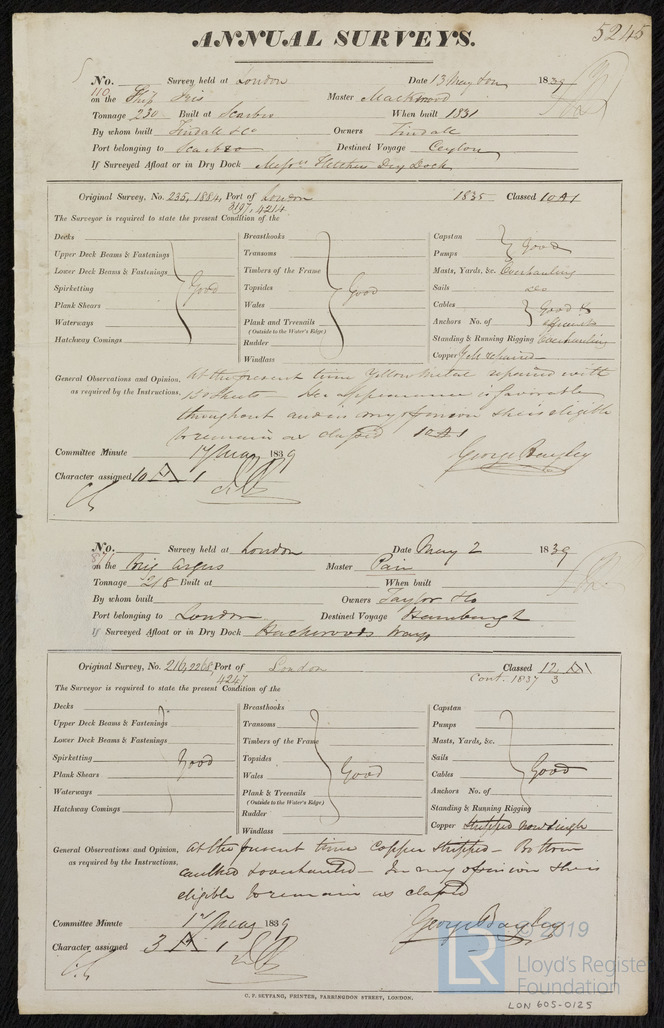 5245
ANNUAL SURVEYS.
No. Survey held at London Date 13 May 1839
110 on the Ship Iris Master Mackwood
Tonnage 230 Built at Scarbro When built 1831
By whom built Tindall & Co Owners Tindall
Port belonging to Scarbro Destined Voyage Ceylon
If Surveyed Afloat or in Dry Dock Messrs Fletchers Dry Dock
Original Survey, No. 235, 1884, Port of London 1835 Classed 10 A1
3197, 4214
The Surveyor is required to state the present Condition of the
Decks Breasthooks Capstan
Upper Deck Beams & Fastenings Transoms Pumps Good
Lower Deck Beams & Fastenings Timbers of the Frame Masts, Yards, &c. Overhauling
Spirketting Good Topsides Good Sails do
Plank Shears Wales Cables Good &
Waterways Plank and Treenails Anchors No. of
(Outside to the Water's Edge)
Hatchway Comings Rudder Standing & Running Rigging Overhauling
Windlass Copper repaired
General Observations and Opinion, At the present time Yellow Metal repaired with
as required by the Instructions. Her appearance is favorable
throughout and in my opinion she is eligible
to remain as classed 10 A1
Committee Minute 17 May 1839 George Bayley
Character assigned 10 A 1
No. Survey held at London Date May 2 1839
on the Brig Argus Master Pain
Tonnage 218 Built at When built
By whom built Owners Taylor & Co
Port belonging to London Destined Voyage Hamburgh
If Surveyed Afloat or in Dry Dock
Original Survey, No. 216, 2268, Port of London Classed 12 A1
4247 Cont. 1837 3
The Surveyor is required to state the present Condition of the
Decks Breasthooks Capstan
Upper Deck Beams & Fastenings Transoms Pumps
Lower Deck Beams & Fastenings Timbers of the Frame Masts, Yards, &c.
Spirketting Good Topsides Sails
Plank Shears Wales Good Cables Good
Waterways Plank & Treenails Anchors No. of
(Outside to the Water's Edge)
Hatchway Comings Rudder Standing & Running Rigging
Windlass Copper stripped
General Observations and Opinion, At the present time Copper stripped – Bottom
as required by the Instructions. caulked & overhauled – In my opinion she is
eligible to remain as classed
Committee Minute 17 May 1839 George Bayley
Character assigned 3 A 1
© 2019
LR Lloyd's Register
Foundation
C. F. SEYFANG, PRINTER, FARRINGDON STREET, LONDON.
LON 605-0125